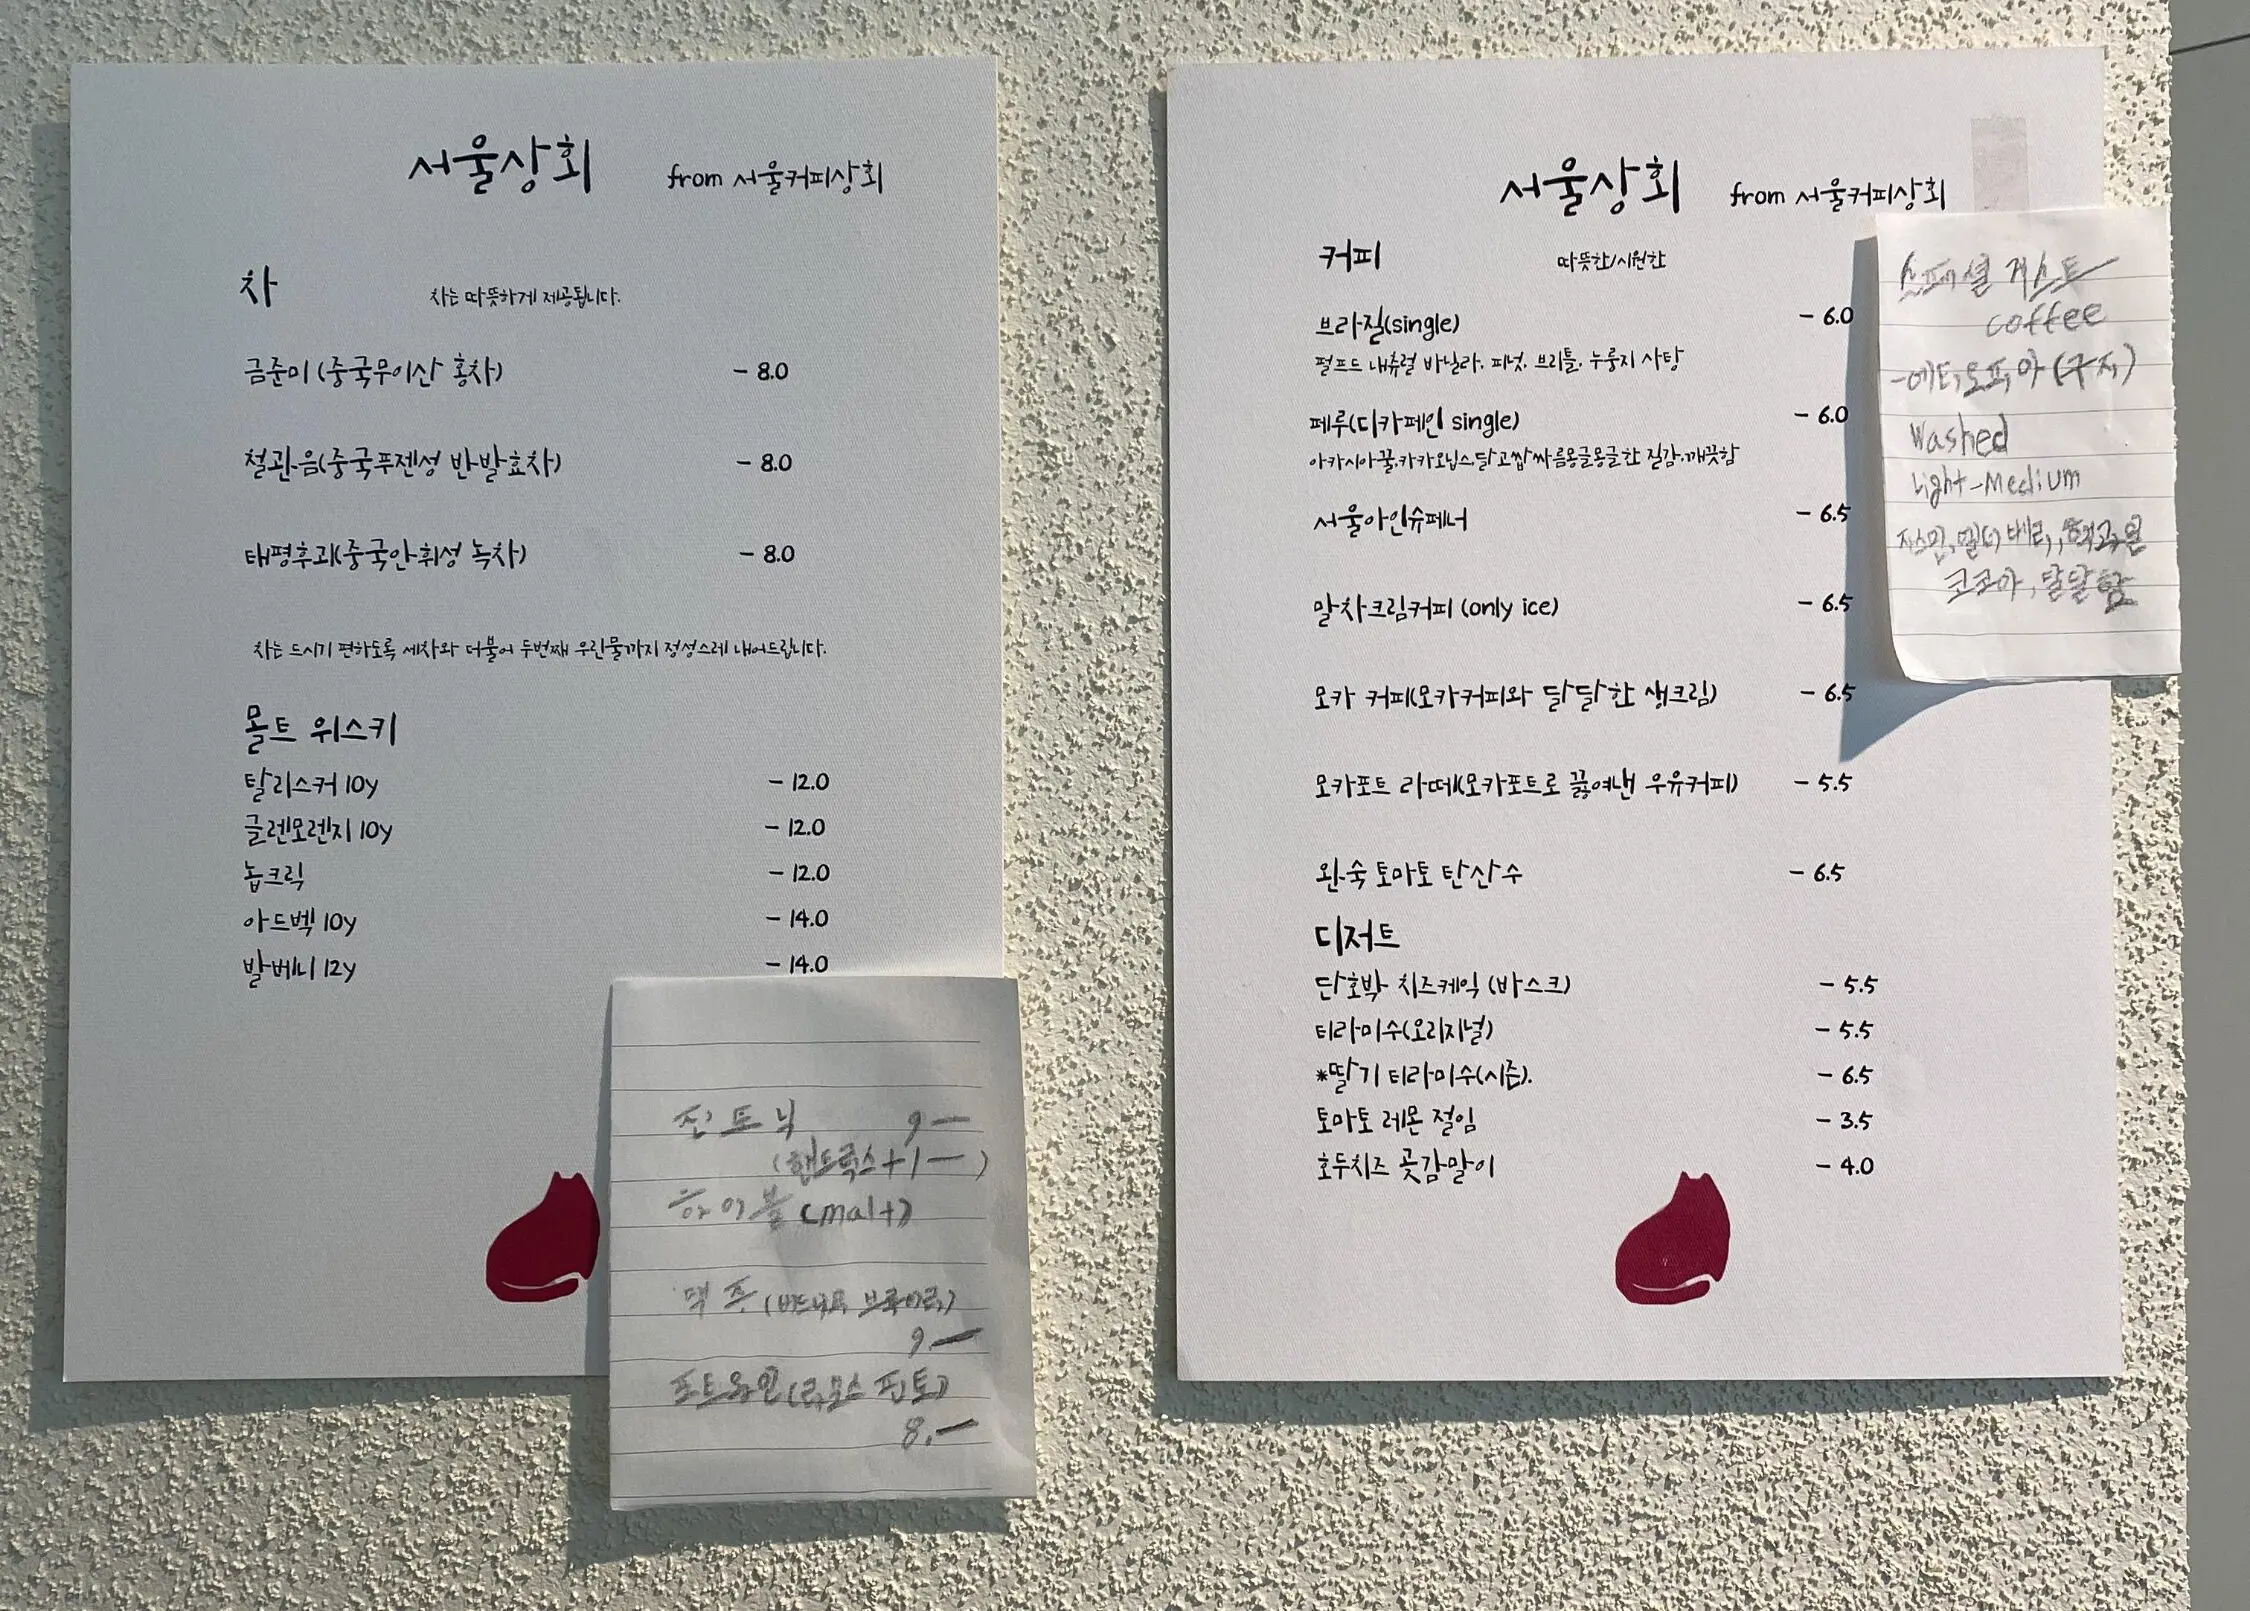 서울상회 from 서울커피상회
차 차는 따뜻하게 제공됩니다.
금준미 (중국무이산 홍차) - 8.0
철관음(중국푸젠성 반발효차) - 8.0
태평후괴(중국안휘성 녹차) - 8.0
차는 드시기 편하도록 세차와 더불어 두번째 우린물까지 정성스레 내어드립니다.
몰트 위스키
탈리스커 10y - 12.0
글렌모렌지 10y - 12.0
놉크릭 - 12.0
아드벡 10y - 14.0
발베니 12y - 14.0
진토닉 9.-
(핸드릭스 +1-)
하이볼 (malt)
맥주
9.-
포트와인 (라모스 핀토)
8.-
서울상회 from 서울커피상회
커피 따뜻한/시원한
브라질(single) - 6.0
펄프드 내츄럴 바닐라. 피넛. 브리틀. 누룽지 사탕
페루(디카페인 single) - 6.0
아카시아꿀.카카오닙스.달고쌉싸름몽글몽글한 질감.깨끗함
서울아인슈페너 - 6.5
말차크림커피 (only ice) - 6.5
모카 커피(모카커피와 달달한 생크림) - 6.5
모카포트 라떼(모카포트로 끓여낸 우유커피) - 5.5
완숙 토마토 탄산수 - 6.5
디저트
단호박 치즈케익 (바스크) - 5.5
티라미수(오리지널) - 5.5
*딸기 티라미수(시즌). - 6.5
토마토 레몬 절임 - 3.5
호두치즈 곶감말이 - 4.0
스페셜 게스트
coffee
-에티오피아 (구지)
Washed
Light-Medium
자스민, 엘더베리,
코코아, 달달함